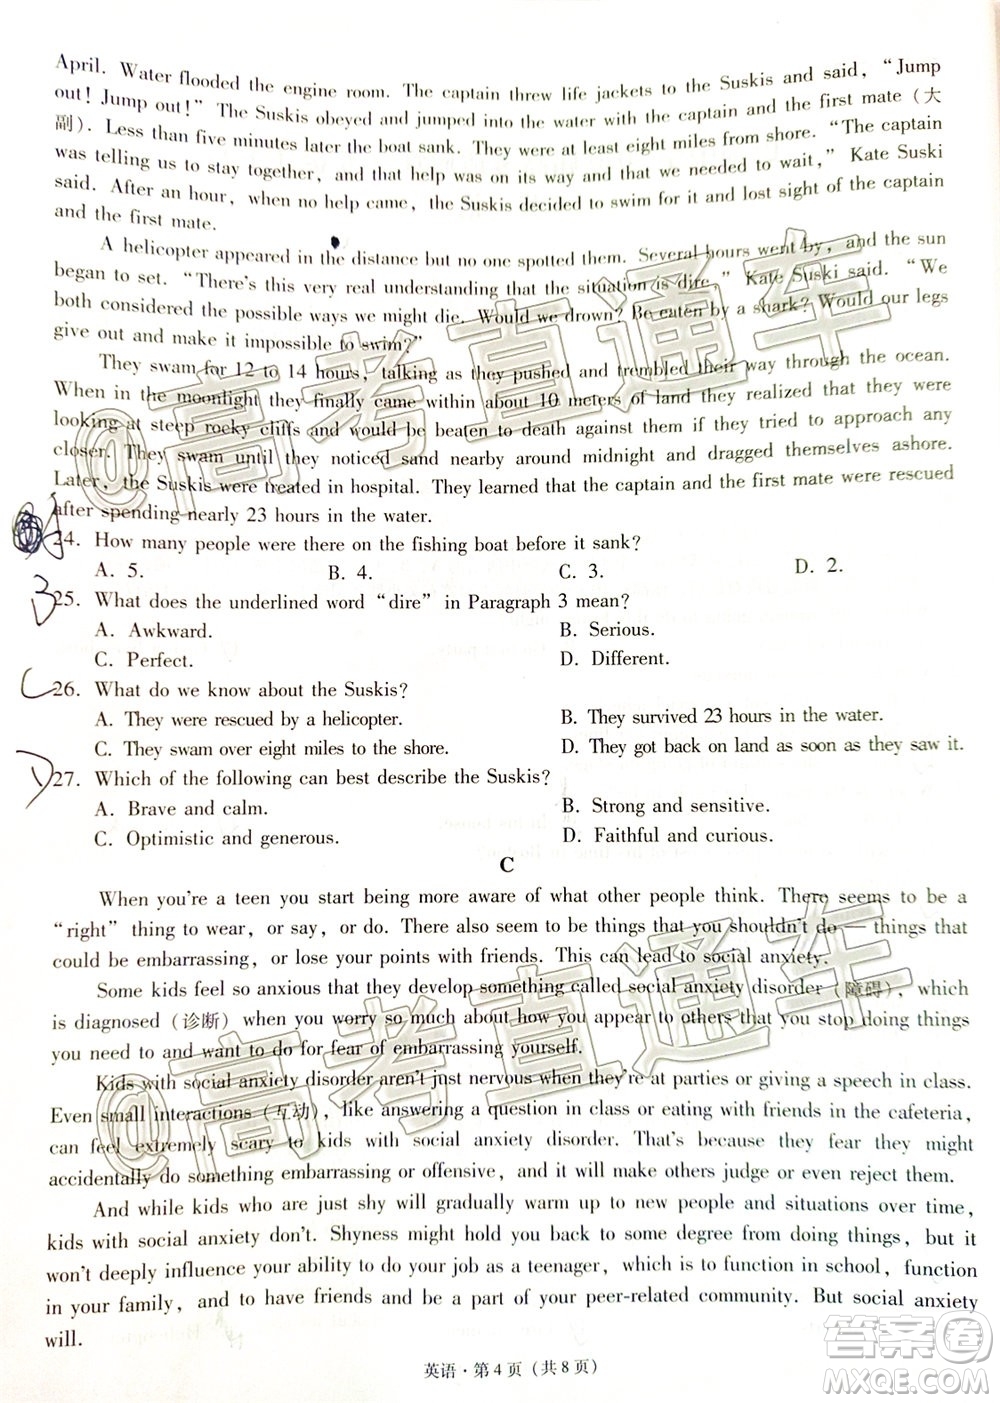 April. Water flooded the engine room. The captain threw life jackets to the Suskis and said, “Jump
out! Jump out!” The Suskis obeyed and jumped into the water with the captain and the first mate（大
副）. Less than five minutes later the boat sank. They were at least eight miles from shore. “The captain
was telling us to stay together, and that help was on its way and that we needed to wait,” Kate Suski
said. After an hour, when no help came, the Suskis decided to swim for it and lost sight of the captain
and the first mate.
A helicopter appeared in the distance but no one spotted them. Several hours went by, and the sun
began to set. “There's this very real understanding that the situation is dire,” Kate Suski said. “We
both considered the possible ways we might die. Would we drown? Be eaten by a shark? Would our legs
give out and make it impossible to swim?”
They swam for 12 to 14 hours, talking as they pushed and trembled their way through the ocean.
When in the moonlight they finally came within about 10 meters of land they realized that they were
looking at steep rocky cliffs and would be beaten to death against them if they tried to approach any
closer. They swam until they noticed sand nearby around midnight and dragged themselves ashore.
Later, the Suskis were treated in hospital. They learned that the captain and the first mate were rescued
after spending nearly 23 hours in the water.
24. How many people were there on the fishing boat before it sank?
A. 5. B. 4. C. 3. D. 2.
B 25. What does the underlined word “dire” in Paragraph 3 mean?
A. Awkward. B. Serious.
C. Perfect. D. Different.
C 26. What do we know about the Suskis?
A. They were rescued by a helicopter. B. They survived 23 hours in the water.
C. They swam over eight miles to the shore. D. They got back on land as soon as they saw it.
D 27. Which of the following can best describe the Suskis?
A. Brave and calm. B. Strong and sensitive.
C. Optimistic and generous. D. Faithful and curious.
C
When you're a teen you start being more aware of what other people think. There seems to be a
“right” thing to wear, or say, or do. There also seem to be things that you shouldn't do — things that
could be embarrassing, or lose your points with friends. This can lead to social anxiety.
Some kids feel so anxious that they develop something called social anxiety disorder（障碍）, which
is diagnosed（诊断）when you worry so much about how you appear to others that you stop doing things
you need to and want to do for fear of embarrassing yourself.
Kids with social anxiety disorder aren't just nervous when they're at parties or giving a speech in class.
Even small interactions（互动）, like answering a question in class or eating with friends in the cafeteria,
can feel extremely scary to kids with social anxiety disorder. That's because they fear they might
accidentally do something embarrassing or offensive, and it will make others judge or even reject them.
And while kids who are just shy will gradually warm up to new people and situations over time,
kids with social anxiety don't. Shyness might hold you back to some degree from doing things, but it
won't deeply influence your ability to do your job as a teenager, which is to function in school, function
in your family, and to have friends and be a part of your peer-related community. But social anxiety
will.
英语·第4页（共8页）
@高考直通车
@高考直通车
答案卷
MXQE.COM